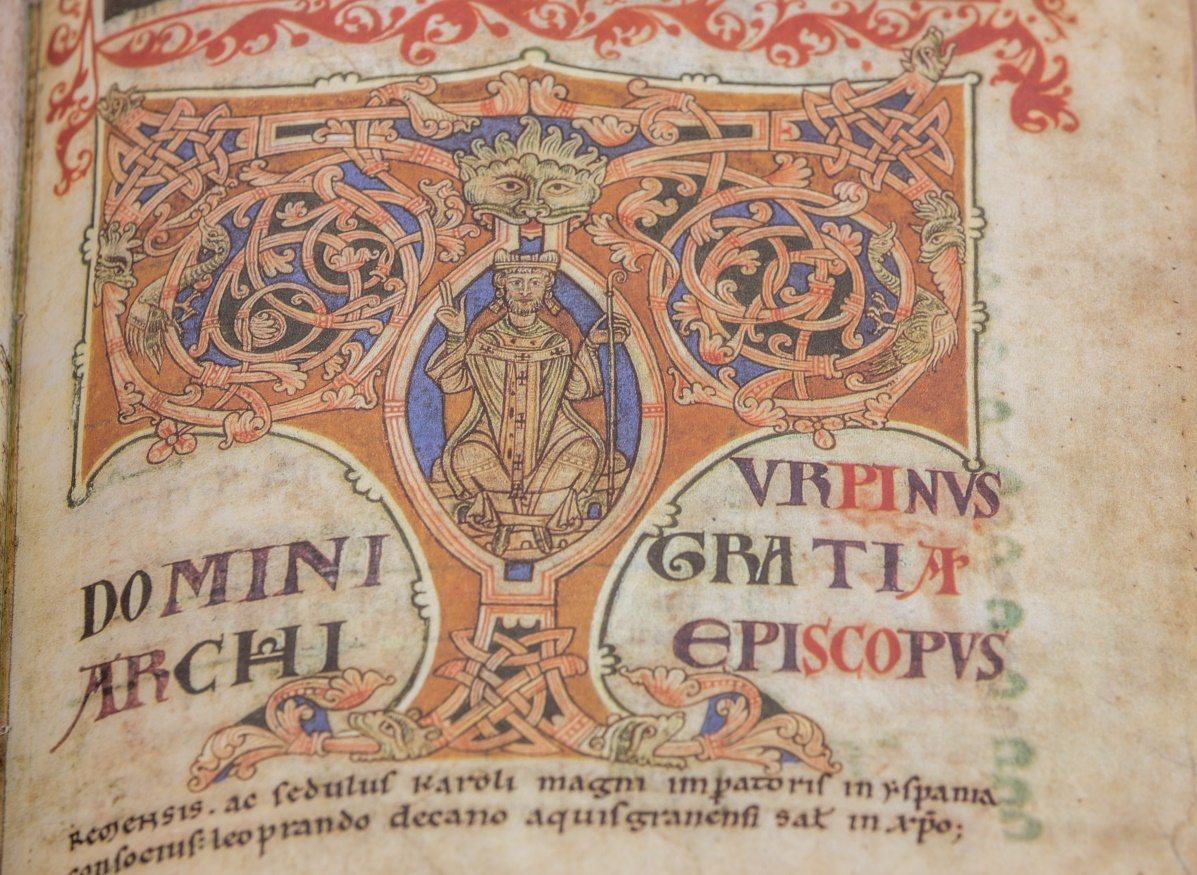 TVRPINVS
DOMINI GRATIA
ARCHI EPISCOPVS
REMENSIS. ac ſeduluſ Karoli magni imꝑatoriſ in yſpania
conſociuſ: leoprando decano aquiſgranenſi sat̄ in xp̄o;